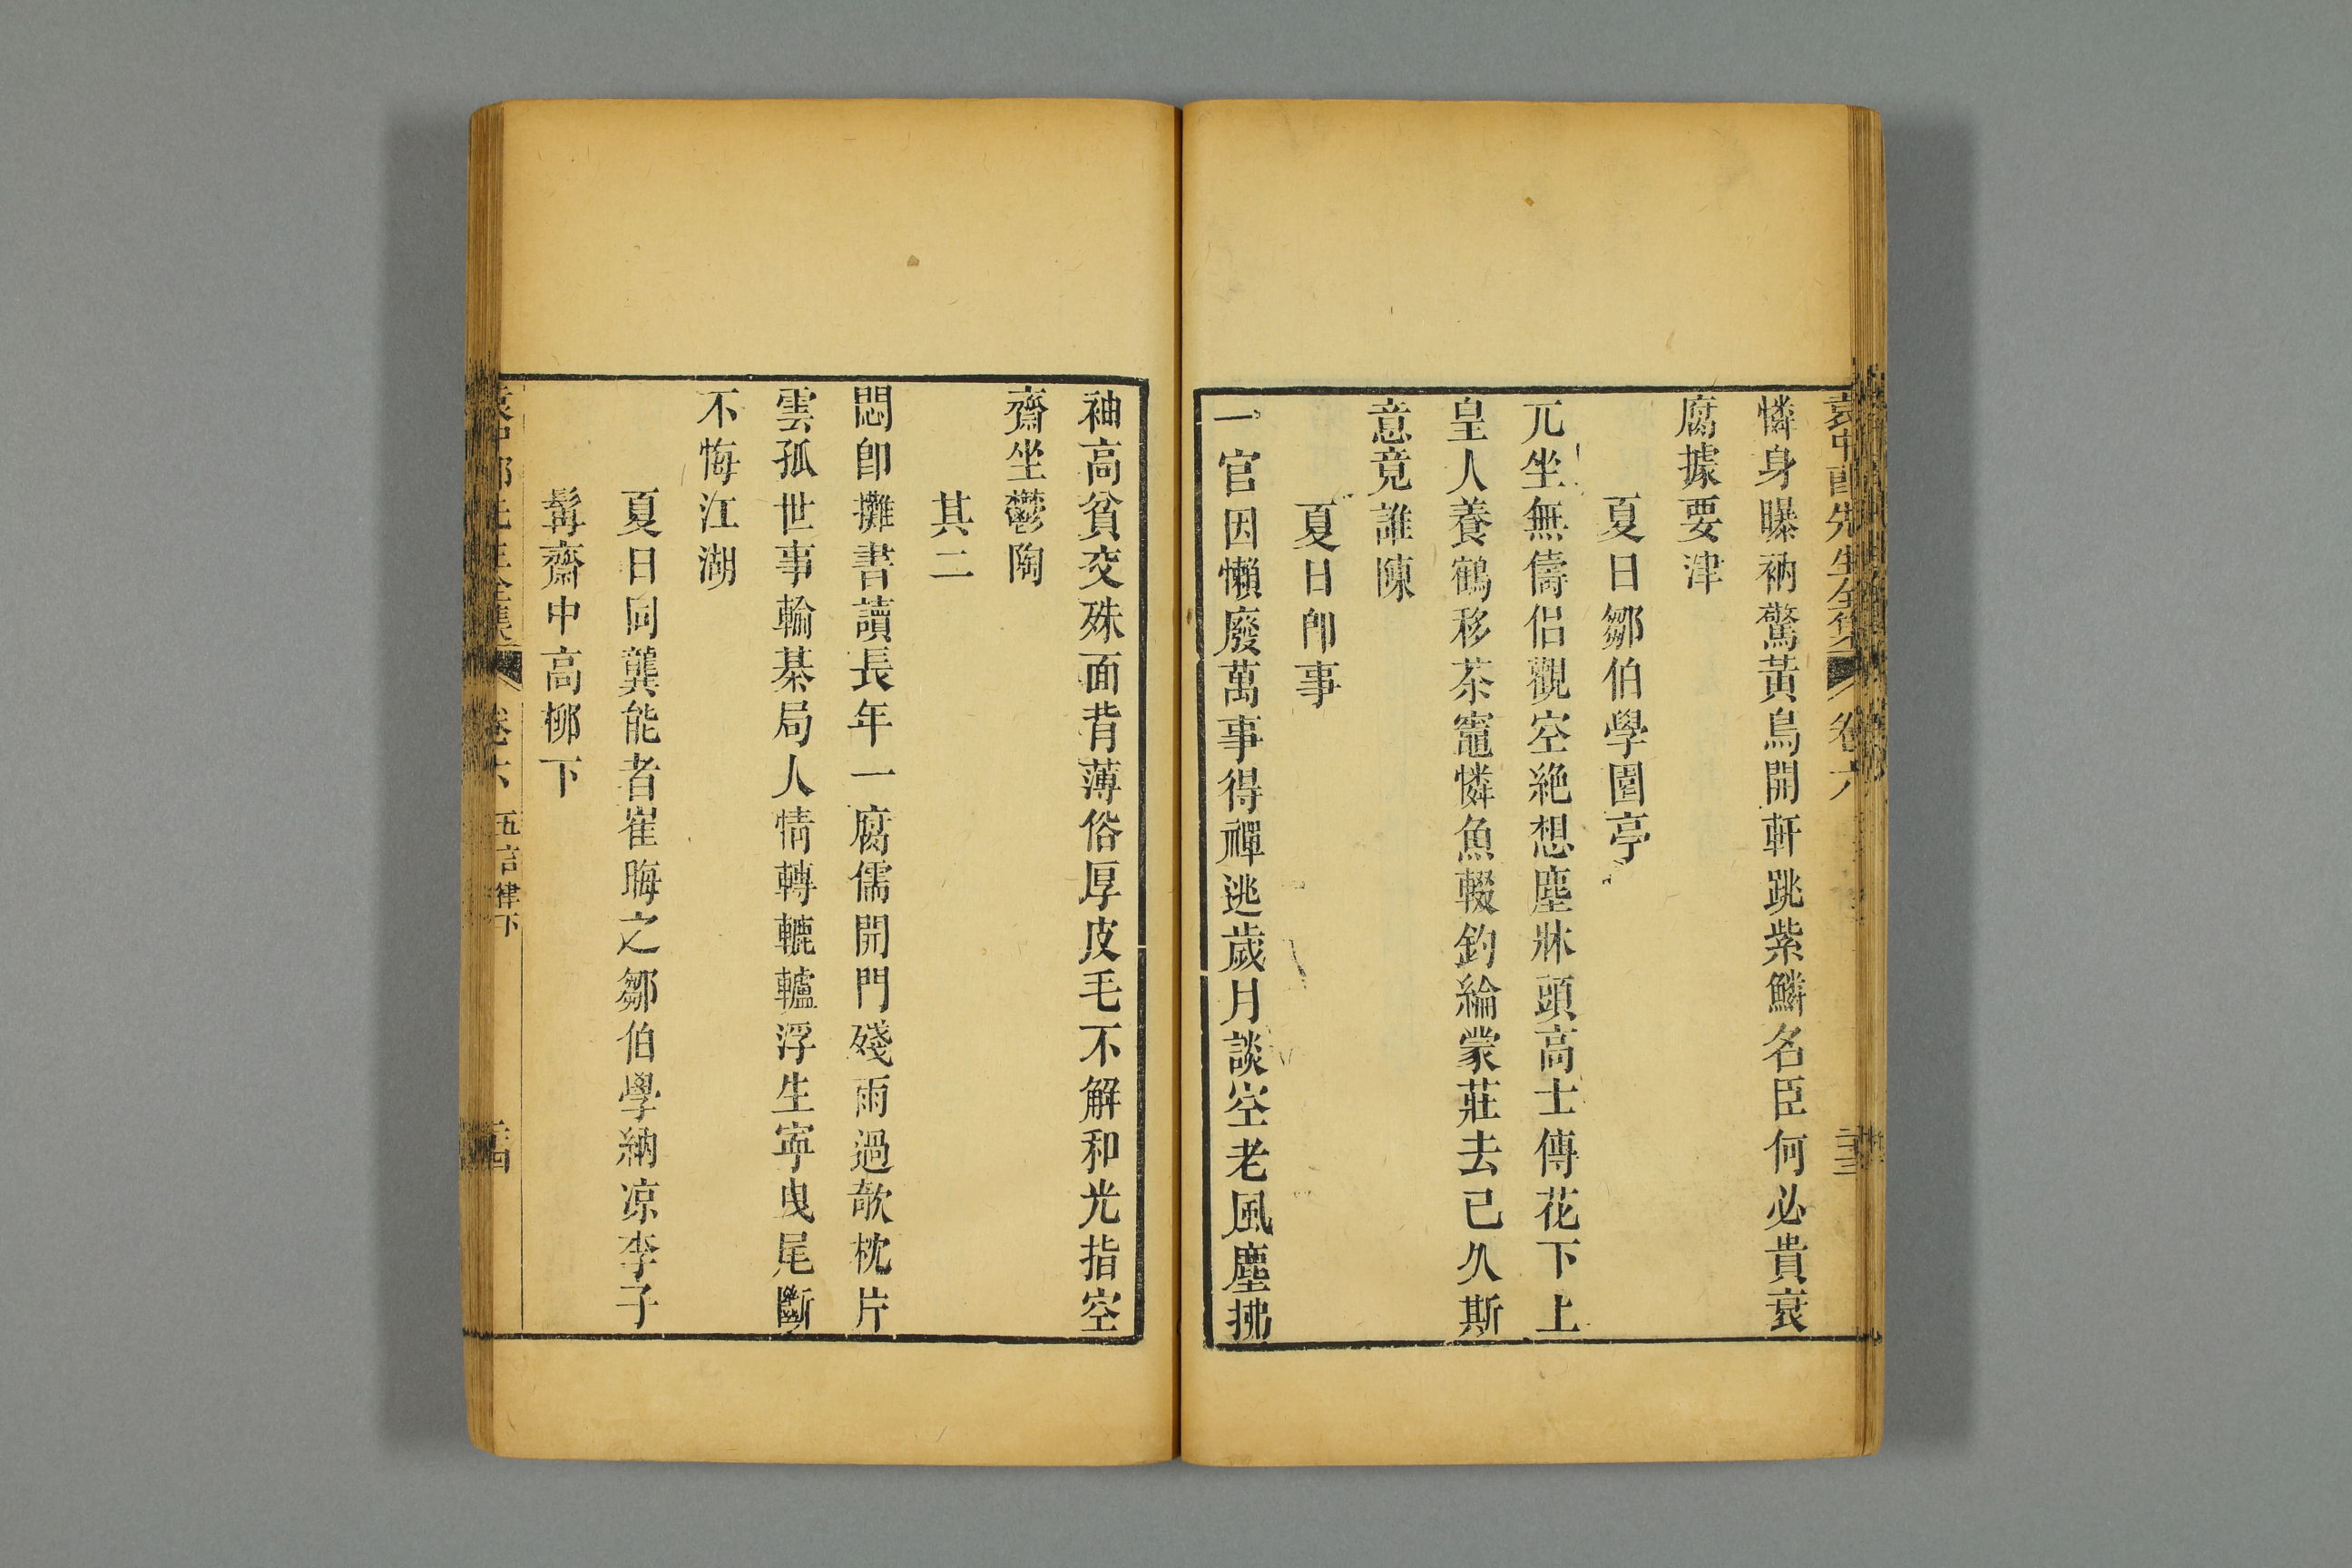 袁中郎先生全集
卷六
憐身曝衲驚黃鳥開軒跳紫鱗名臣何必貴衰
腐據要津
夏日鄒伯學園亭
兀坐無儔侣觀空絶想塵牀頭高士傳花下上
皇人養鶴移茶竈憐魚輟釣綸蒙莊去已久斯
意竟誰陳
夏日卽事
一官因懶廢萬事得禪逃歲月談空老風塵拂
袖高貧交殊面背薄俗厚皮毛不解和光指空
齋坐鬱陶
其二
悶卽攤書讀長年一腐儒開門殘雨過欹枕片
雲孤世事輸棊局人情轉轆轤浮生寧曳尾斷
不悔江湖
夏日同龔能者崔晦之鄒伯學納凉李子
髯齋中高栁下
袁中郎先生全集
卷六
五言律下